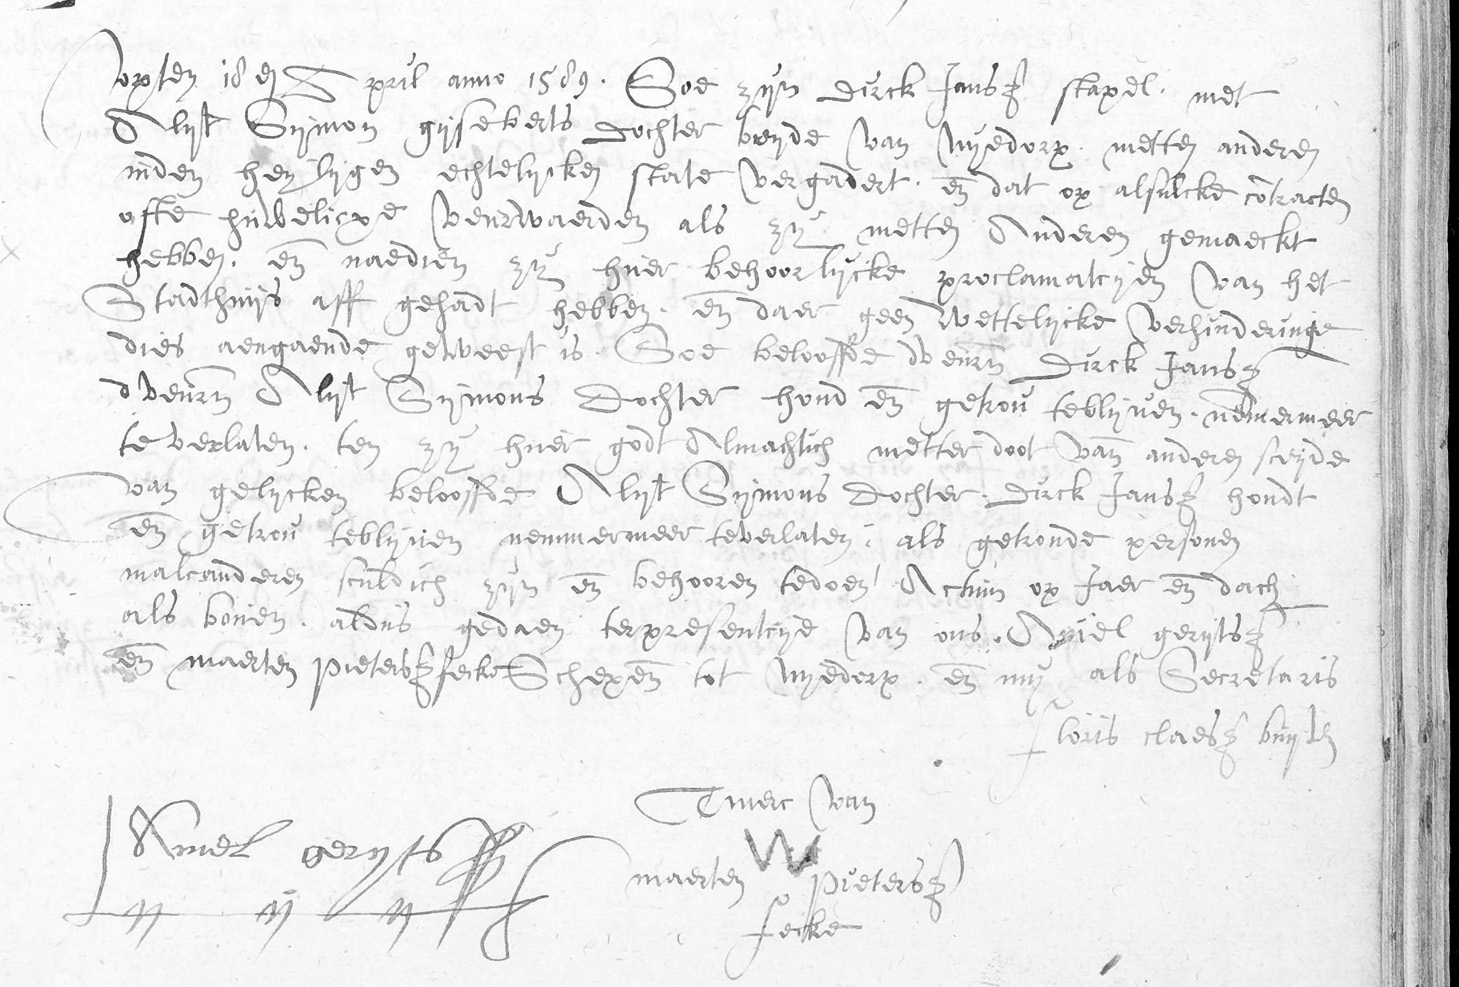 opten 18 en April anno 1589. Soe zijn Dirck Jansz stapel. met
Alijt Sijmon gijseberts dochter beijde van Nijedorp. metten anderen
inden heijlijgen echtelijcken state vergadert. en dat op alsulcke contracten
ofte huwelicxe veurwaerden als zij metten Anderen gemaeckt
hebben. en naedien zij hier behoorlijcke proclamatcijen van het
Stadthuijs aff gehadt hebben. en daer geen wettelijcke verhinderinge
dies aengaende geweest is. Soe beloofde dveurn Dirck Jansz
dveurn Alijt Sijmons Dochter houd en getrou teblijven. nemmermeer
te verlaten. ten zij hier godt Almachtich metter doot van anderen sceijde
van gelijcken beloofde Alijt Sijmons Dochter. Dirck Jansz hondt
en getrou teblijven nemmermeer teverlaten. als getroude personen
malcanderen sculdich zijn en behooren tedoen. Actum op Jaer en dach
als boven. aldus gedaen terpresentcije van ons. Amel gerijtsz
en maerten pietersz fecke Schepen tot Nijedorp. en mij als Secretaris
floris claesz
Amel gerijts
Tmerc van
maerten pietersz
fecke